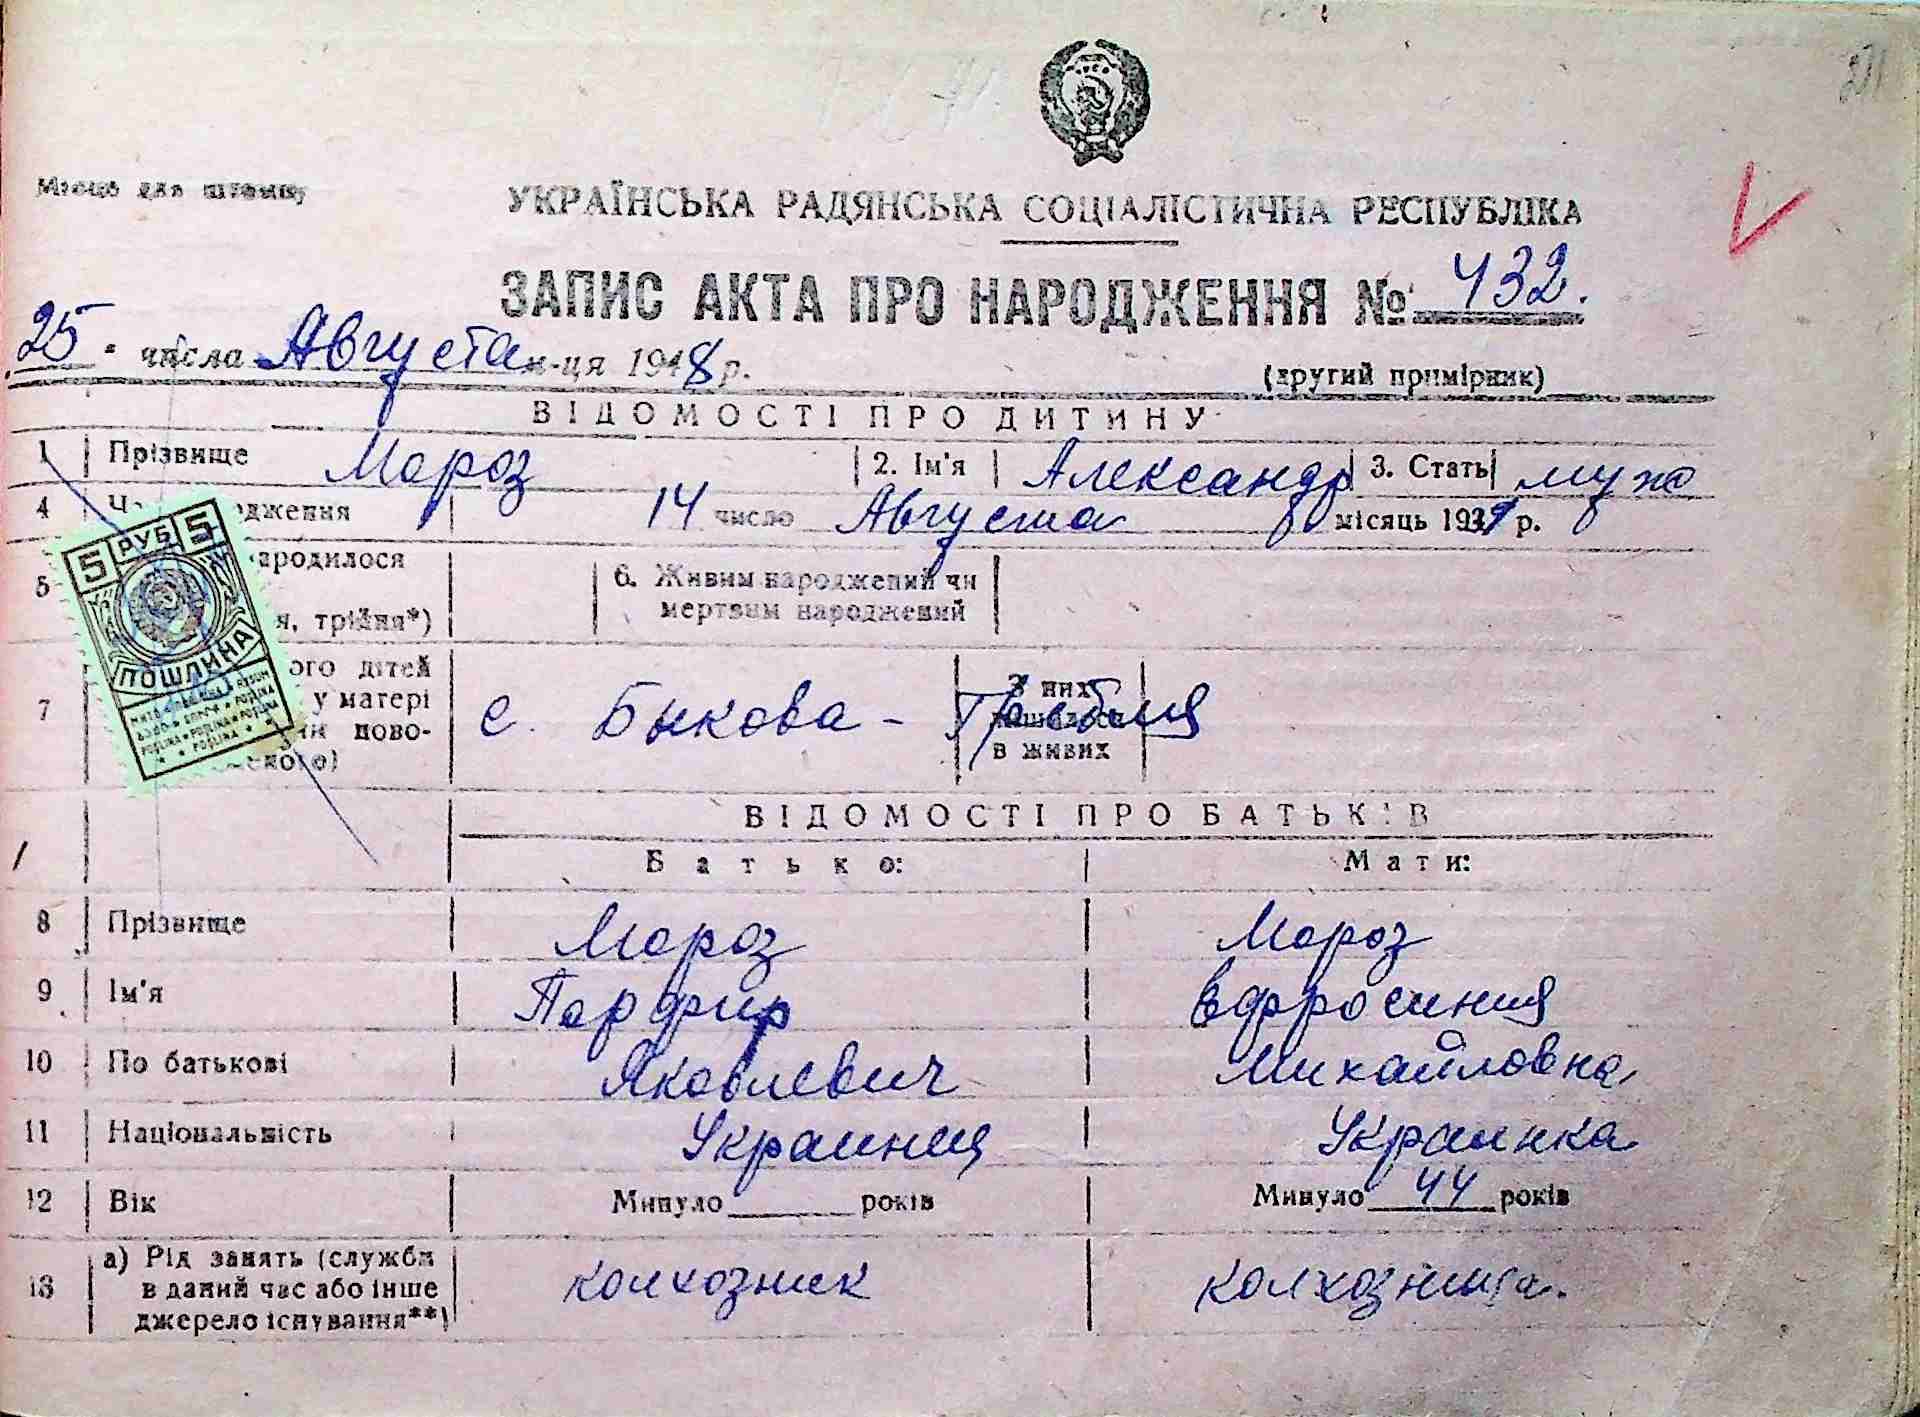 Місце для штампу
УКРАЇНСЬКА РАДЯНСЬКА СОЦІАЛІСТИЧНА РЕСПУБЛІКА
ЗАПИС АКТА ПРО НАРОДЖЕННЯ № 432.
25 числа Августа м-ця 1948 р.
(другий примірник)
ВІДОМОСТІ ПРО ДИТИНУ
1 Прізвище Мороз 2. Ім'я Александр 3. Стать муж
4 14 число Августа місяць 193 р.
5 народилося 6. Живим народжений чи
мертвим народжений
трійня*)
7 дітей
у матері
ново-
с. Быкова - Гребля
З них
в живих
5 РУБ 5
ПОШЛИНА
ВІДОМОСТІ ПРО БАТЬКІВ
Батько: Мати:
8 Прізвище Мороз Мороз
9 Ім'я Порфир Ефросиния
10 По батькові Яковлевич Михайловна
11 Національність Украинец Украинка
12 Вік Минуло років Минуло 44 років
13 а) Рід занять (служби
в даний час або інше
джерело існування**)
колхозник колхозница.